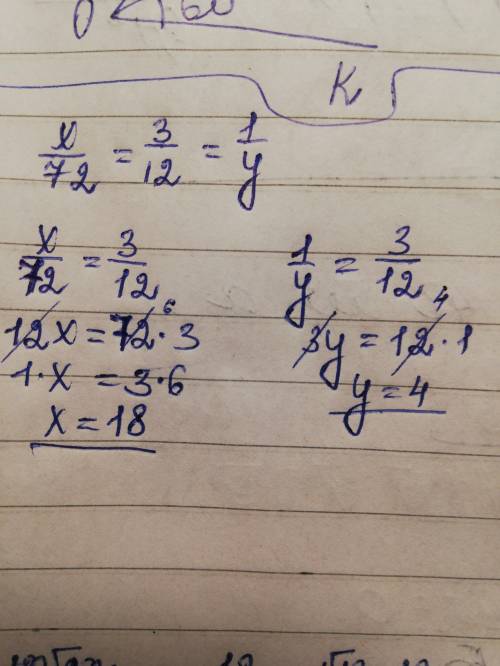 K
x/72 = 3/12 = 1/y
x/72 = 3/12
12x = 72·3
6
1·x = 3·6
x = 18
1/y = 3/12
3y = 12·1
4
y = 4